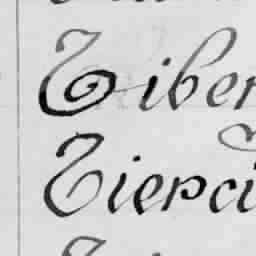 Tiber
Tierci